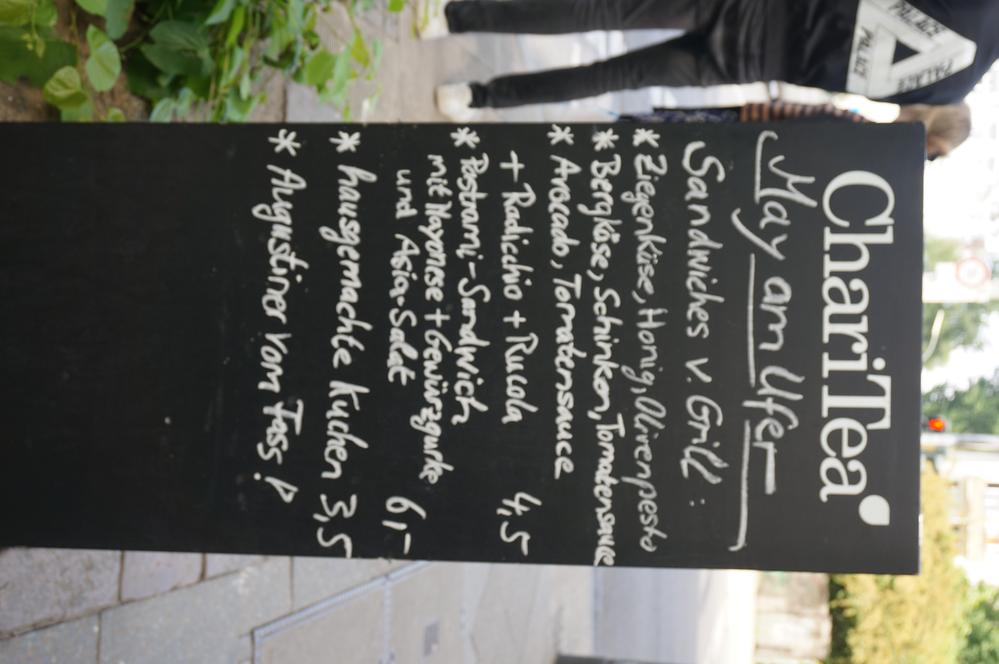 PALACE
PALACE
PALACE
ChariTea
May am Ufer
Sandwiches v. Grill :
* Ziegenkäse, Honig, Olivenpesto
* Bergkäse, Schinken, Tomatensauce
* Avocado, Tomatensauce
+ Radicchio + Rucola 4,5
* Pastrami-Sandwich
mit Mayonese + Gewürzgurke
und Asia-Salat 6,-
* hausgemachte Kuchen 3,5
* Augustiner vom Fass !